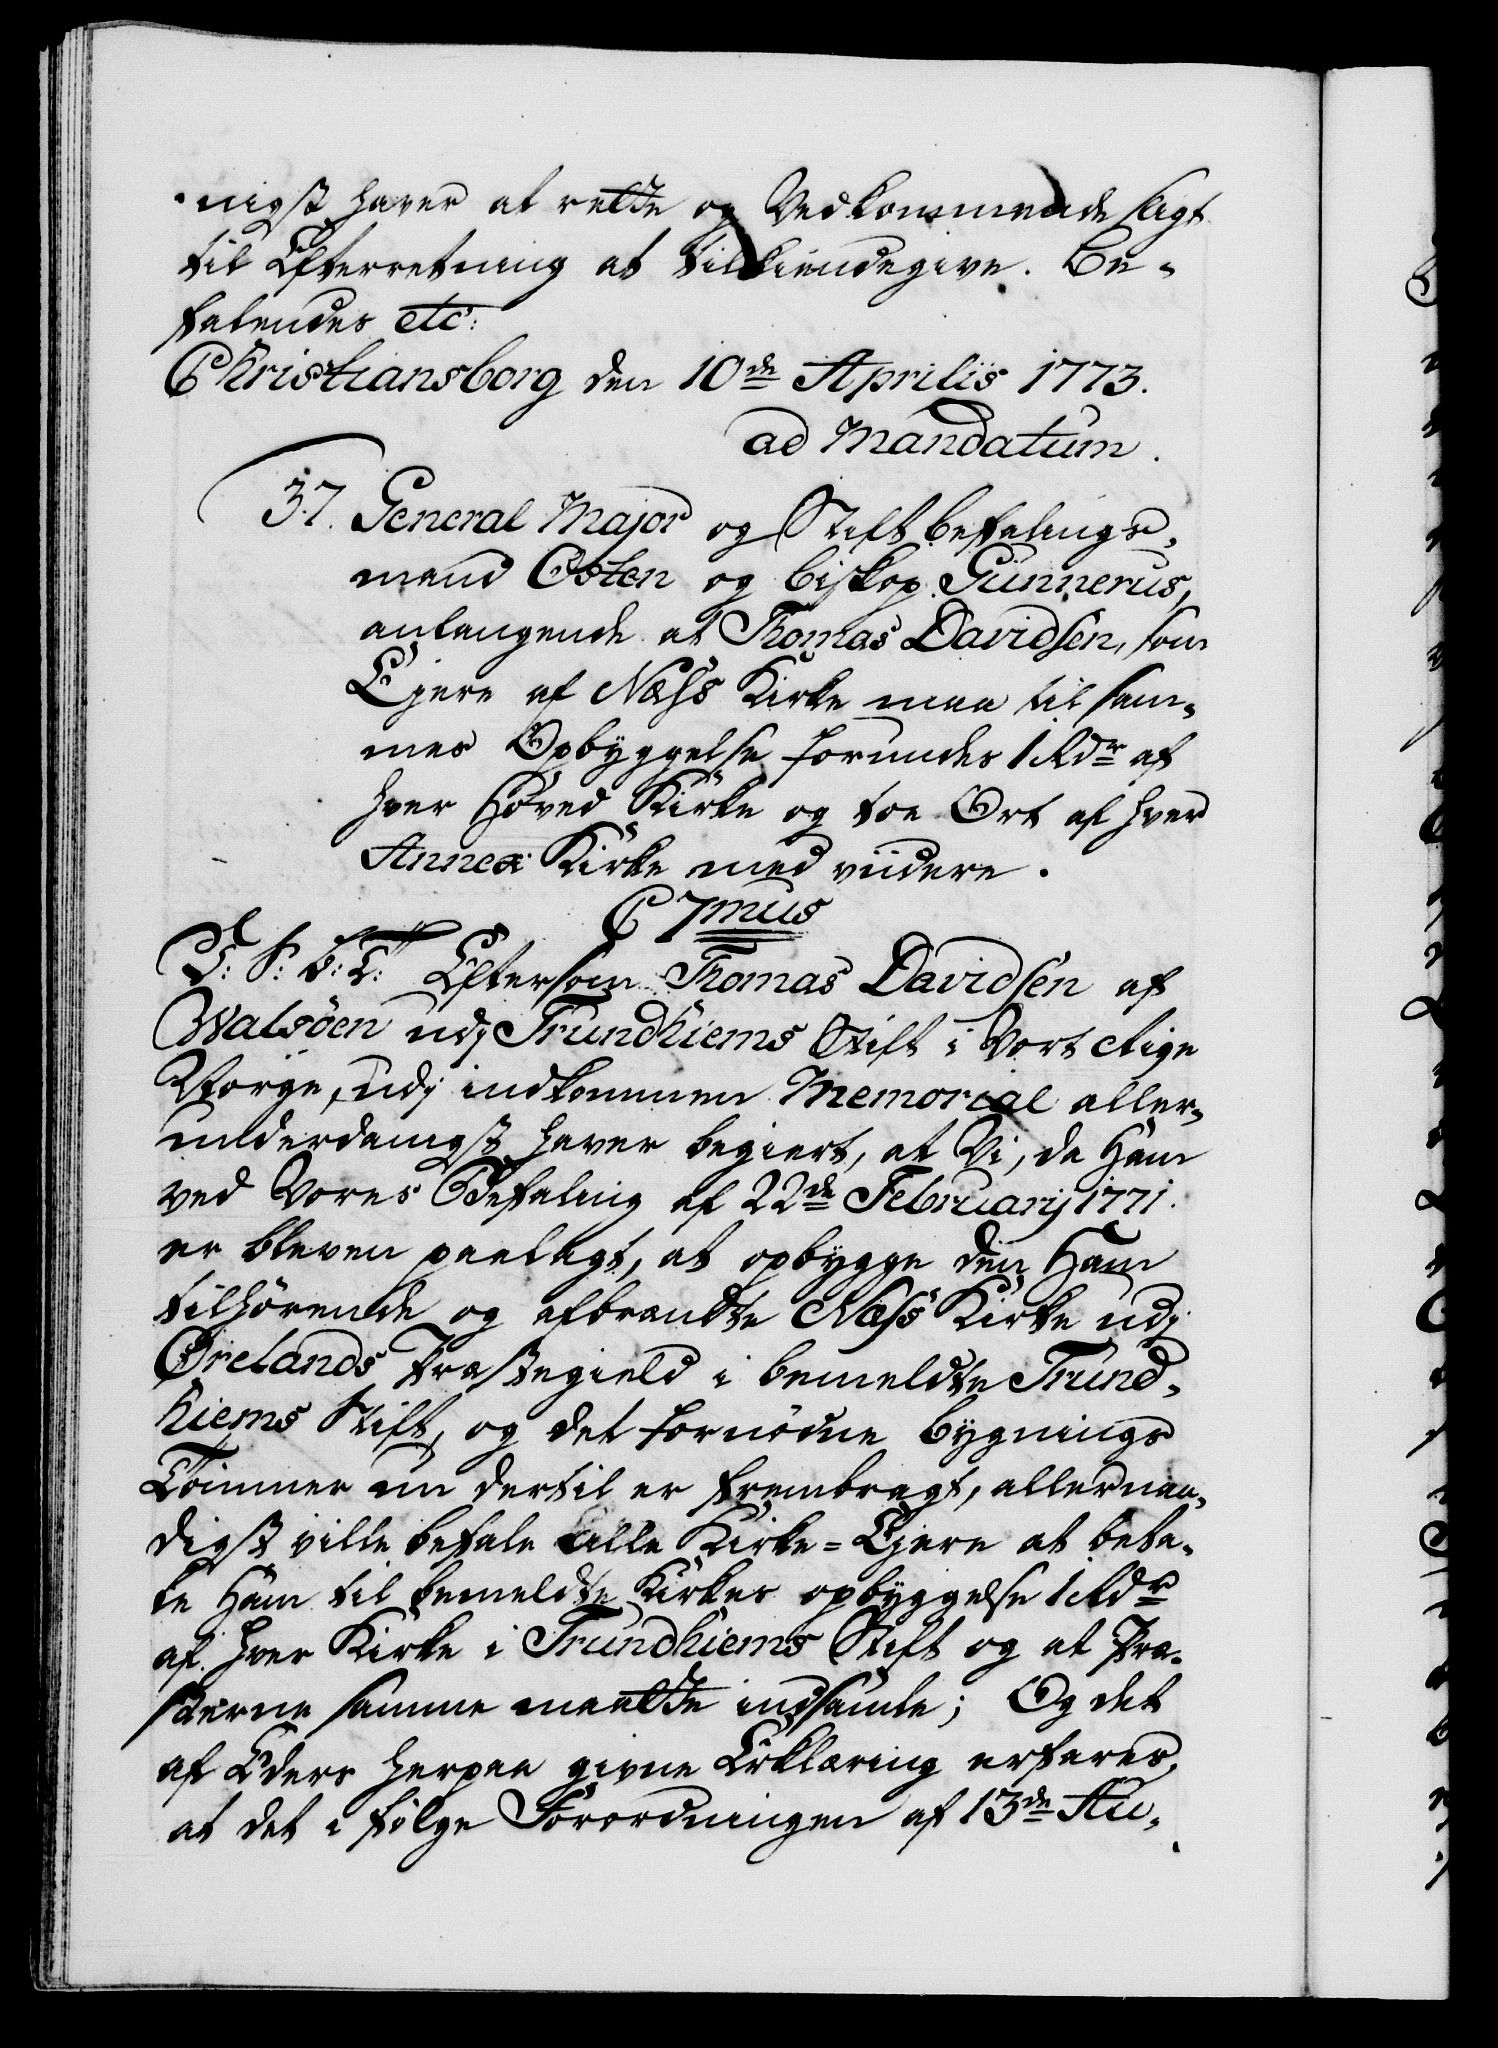 nigst haver at rette og Vedkommende sligt
til Efterretning at tilkiendegive. Be-
falendes etc:
Christiansborg den 10de Aprilis 1773.
ad Mandatum.
37. General Major og Stiftbefalings-
mand Osten og biskop Gunnerus,
anlangende at Thomas Davidsen, som
Ejere af Næss Kirke maa til sam-
mes Opbyggelse forundes 1 Rdr af
hver Hoved Kirke og toe Ort af hver
Annex Kirke med viidere.
C 7mus
Eftersom Thomas Davidsen af
Walsöen udj Trundhiems Stift i Vort Rige
Norge, udj indkommen Memorial aller-
underdanigst haver begiert, at Vi, da Ham
ved Vores Befaling af 22de February 1771.
er bleven paalagt, at opbygge den Ham
tilhörende og afbrændte Næss Kirke udj
Örelands Præstegield i bemeldte Trund-
hiems Stift, og det fornödne bygnings
Tömmer nu dertil er frembragt, allernaa-
digst ville befale alle Kirke-Ejere at beta-
le Ham til bemeldte Kirkes opbyggelse 1 Rdr
af hver Kirke i Trundhiems Stift og at Præ-
sterne samme maatte indsamle; Og det
af Eders herpaa givne Erklæring erfares,
at det i fölge Forordningen af 13de Au-